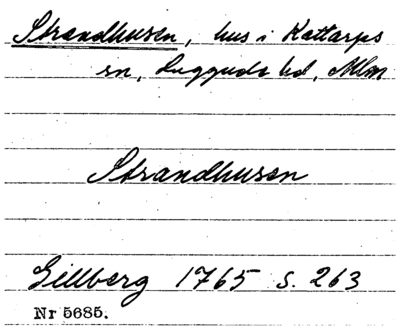 Strandhusen, hus i Kattarps
sn, Luggude hd, Mlm
Strandhusen
Gillberg 1765 s. 263
Nr 5685.